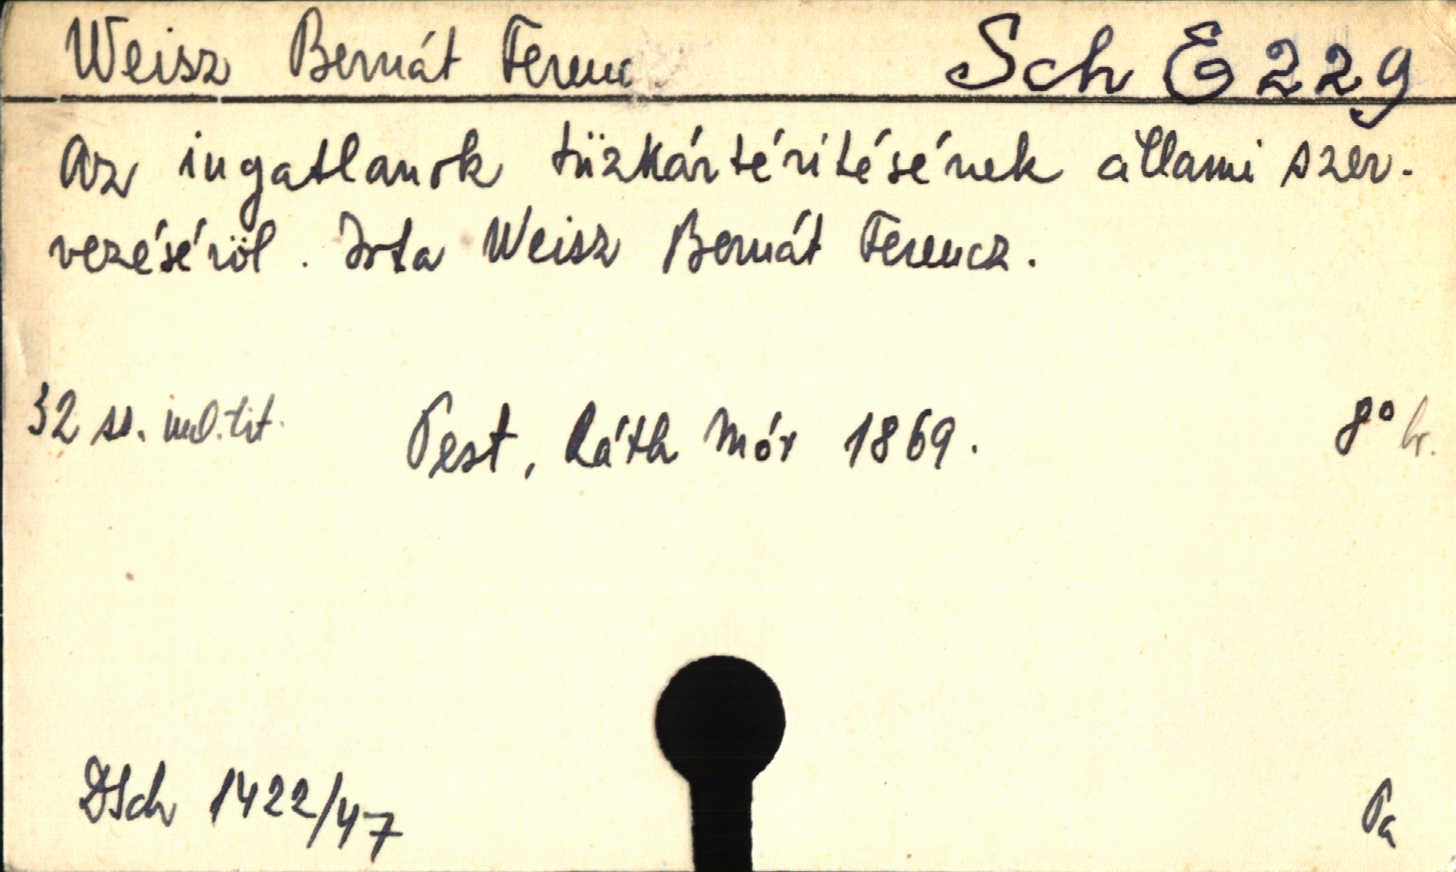 Weisz Bernát Ferenc Sch E 229
Az ingatlanok tüzkártérítésének állami szer-
vezéséről. Irta Weisz Bernát Ferencz.
32 ss. incl. tit. Pest, Ráth Mór 1869. 8° br.
DSch 1422/47 Pa